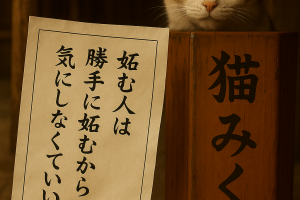 妬む人は
勝手に妬むから
気にしなくていい
猫みく